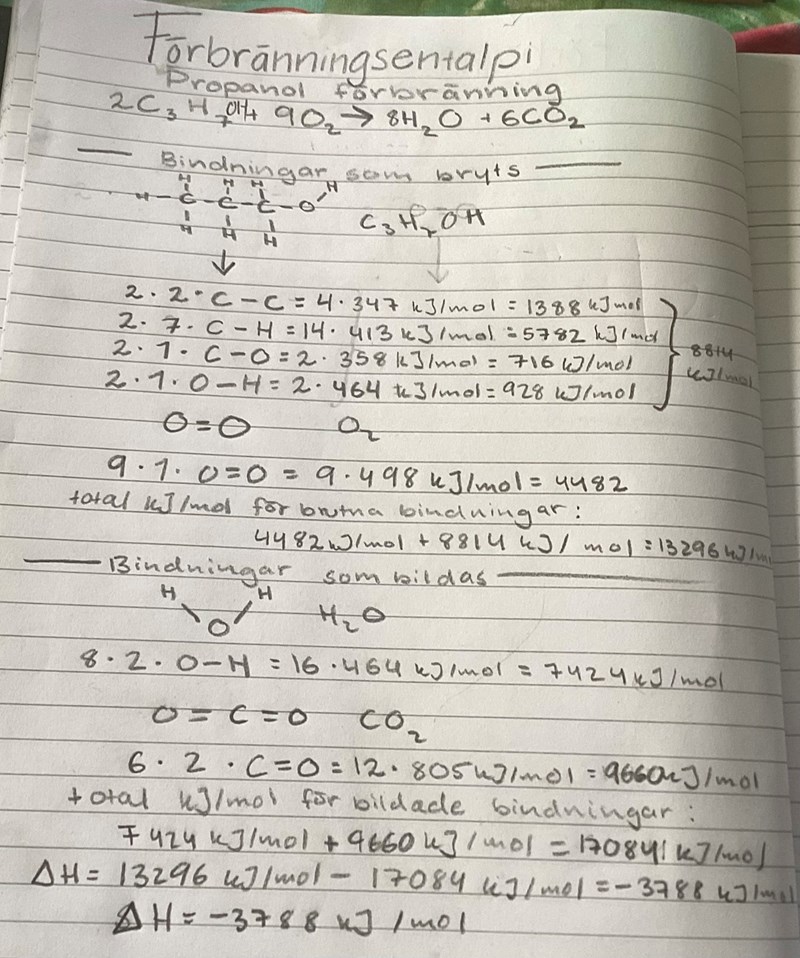 Förbränningsentalpi
Propanol förbränning
2C3H7OH + 9O2 → 8H2O + 6CO2
Bindningar som bryts
H H H H
H-C-C-C-O
H H H
C3H7OH
2·2·C-C = 4·347 kJ/mol = 1388 kJ mol
2·7·C-H = 14·413 kJ/mol = 5782 kJ/mol
2·1·C-O = 2·358 kJ/mol = 716 kJ/mol
2·1·O-H = 2·464 kJ/mol = 928 kJ/mol
8814
kJ/mol
O=O O2
9·1·O=O = 9·498 kJ/mol = 4482
total kJ/mol för brutna bindningar:
4482 kJ/mol + 8814 kJ/mol = 13296 kJ/mol
Bindningar som bildas
H H
O
H2O
8·2·O-H = 16·464 kJ/mol = 7424 kJ/mol
O=C=O CO2
6·2·C=O = 12·805 kJ/mol = 9660 kJ/mol
total kJ/mol för bildade bindningar:
7424 kJ/mol + 9660 kJ/mol = 17084 kJ/mol
ΔH = 13296 kJ/mol - 17084 kJ/mol = -3788 kJ/mol
ΔH = -3788 kJ/mol